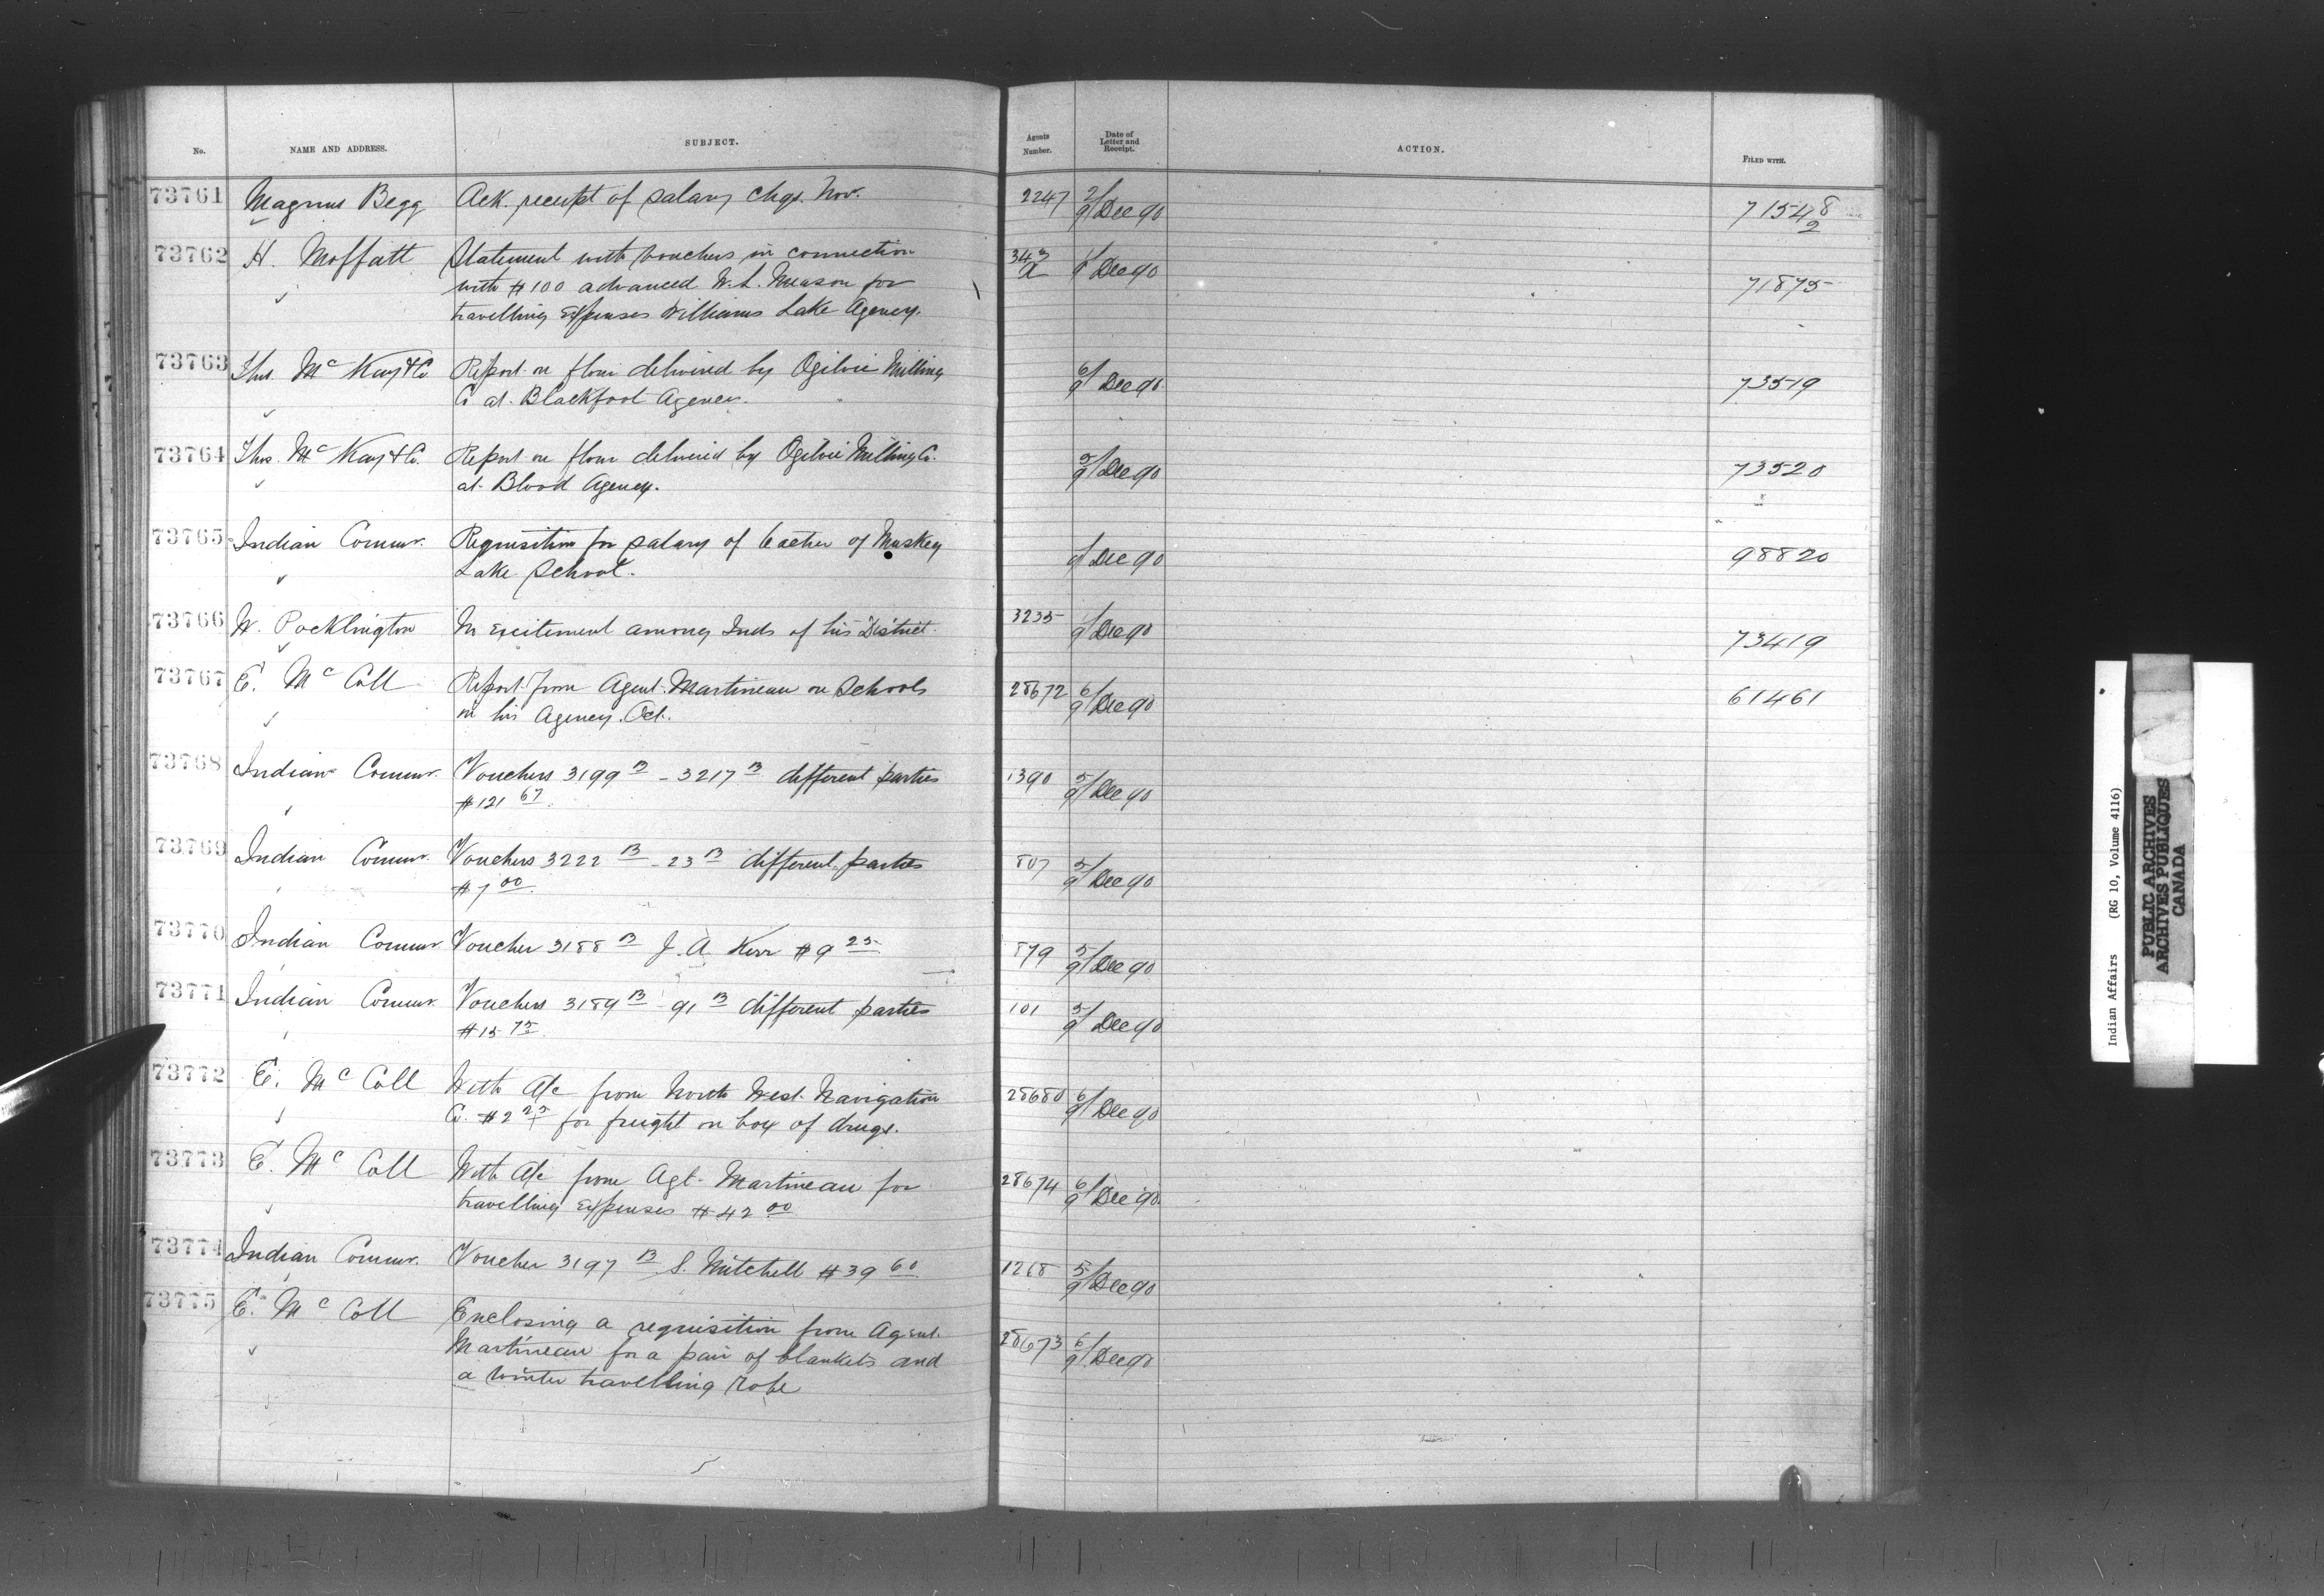 No. NAME AND ADDRESS. SUBJECT. Agents Number. Date of Letter and Receipt. ACTION. FILED WITH.
73761 Magnus Begg Ack. receipt of salary chqs. Nov. 2247 2/9 Dec 90 71548/2
73762 H. Moffatt Statement with vouchers in connection 343 a Dec 90 71875
with $100 advanced W. L. Meason for
travelling expenses Williams Lake Agency.
73763 Thos. McKay & Co. Report on flour delivered by Ogilvie Milling 6/9 Dec 90 73519
Co at Blackfoot Agency.
73764 Thos. McKay & Co. Report on flour delivered by Ogilvie Milling Co. 5/9 Dec 90 73520
at Blood Agency.
73765 Indian Commr. Requisition for salary of teacher of Muskeg 9/ Dec 90 98820
Lake School.
73766 W. Pocklington No excitement among Inds of his District. 3235 /9 Dec 90 73419
73767 E. McColl Report from Agent Martineau on Schools 28672 6/9 Dec 90 61461
in his Agency. Oct.
73768 Indian Commr. Vouchers 3199 B - 3217 B different parties 1390 5/9 Dec 90
$121 67.
73769 Indian Commr. Vouchers 3222 B - 23 B different parties 807 5/9 Dec 90
$7 00.
73770 Indian Commr. Voucher 3188 B J. A. Kerr $9 25. 879 5/9 Dec 90
73771 Indian Commr. Vouchers 3189 B - 91 B different parties 101 5/9 Dec 90
$15 75.
73772 E. McColl With A/c from North West Navigation 28680 6/9 Dec 90
Co. $2 25 for freight on box of drugs.
73773 E. McColl With A/c from Agt. Martineau for 28674 6/9 Dec 90
travelling expenses $42 00
73774 Indian Commr. Voucher 3197 B S. Mitchell $39 60. 1268 5/9 Dec 90
73775 E. McColl Enclosing a requisition from Agent 28673 6/9 Dec 90
Martineau for a pair of blankets and
a winter travelling robe
Indian Affairs (RG 10, Volume 4116)
PUBLIC ARCHIVES
ARCHIVES PUBLIQUES
CANADA